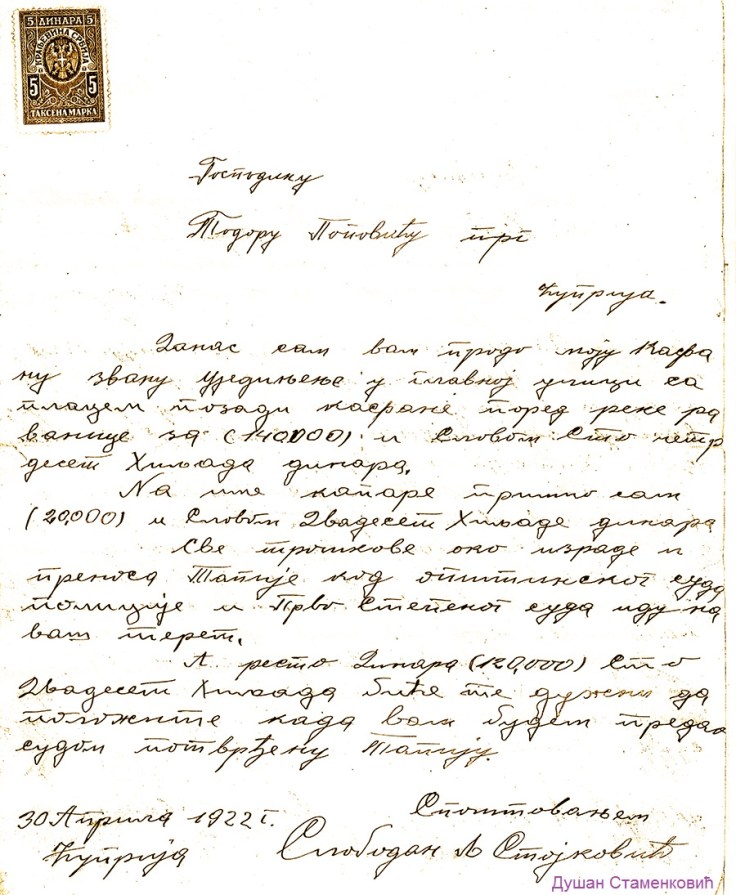 5 ДИНАРА 5
КРАЉЕВИНА СРБИЈА
5 5
ТАКСЕНА МАРКА
Господину
Тодору Поповићу трг
Ћуприја.
Данас сам вам продо моју Кафа
ну звану Уједињење у главној улици са
плацем позади кафане поред реке ра
ванице за (140000) и Словом Сто четр
десет Хиљада динара.
На име капаре примио сам
(20,000) и Словом Двадесет Хиљаде динара
Све трошкове око израде и
преноса Тапије код општинског суда
полиције и Прво Степеног суда иду на
ваш терет.
А ресто Динара (120,000) Сто
Двадесет Хиљада биће те дужни да
положите када вам будем предао
судом потврђену Тапију.
Споштовањем
30 Априла 1922 г.
Ћуприја
Слободан Л Стојковић
Душан Стаменковић